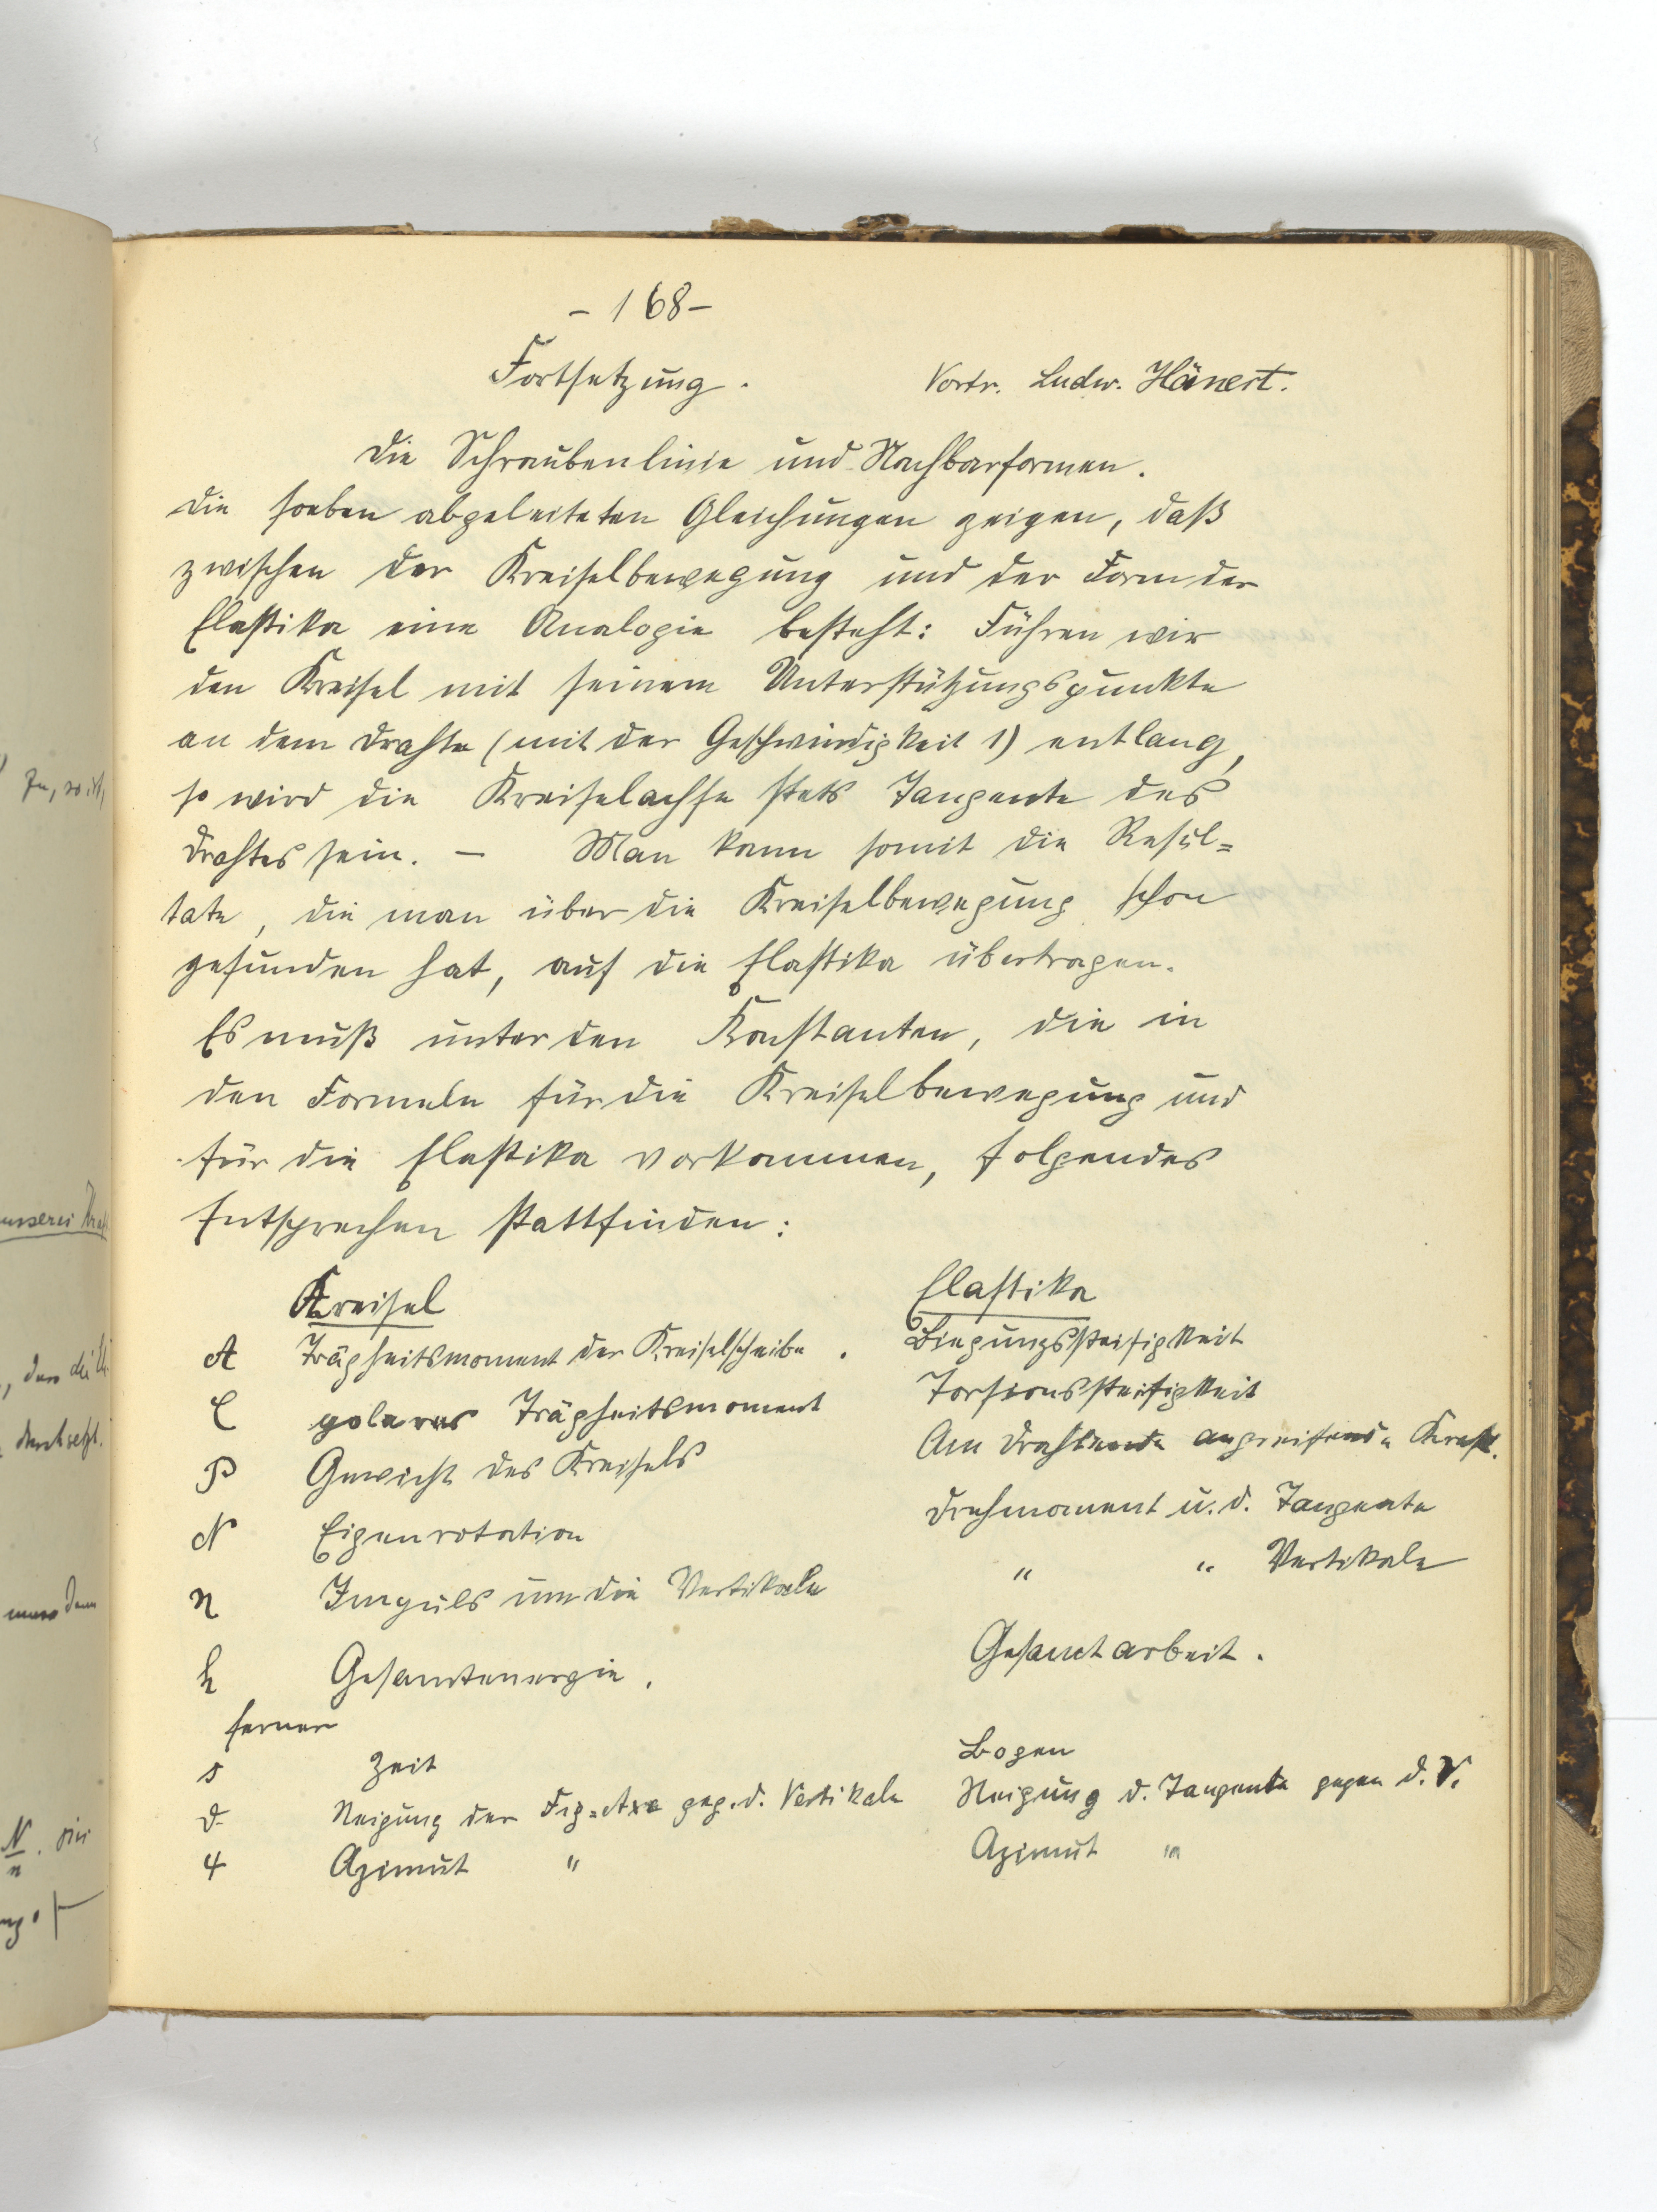 - 168 -
Fortsetzung.
Vortr. Ludw. Hänert.
Die Schraubenlinie und Nachbarformen.
Die soeben abgeleiteten Gleichungen zeigen, daß
zwischen der Kreiselbewegung und der Form der
Elastika eine Analogie besteht: Führen wir
den Kreisel mit seinem Unterstützungspunkte
an dem Drahte (mit der Geschwindigkeit 1) entlang,
so wird die Kreiselachse stets Tangente des
Drahtes sein. — Man kann somit die Resul=
tate, die man über die Kreiselbewegung schon
gefunden hat, auf die Elastika übertragen.
Es muß unter den Konstanten, die in
den Formeln für die Kreiselbewegung und
für die Elastika vorkommen, folgendes
Entsprechen stattfinden:
Kreisel Elastika
A Trägheitsmoment der Kreiselscheibe. Biegungssteifigkeit
C polares Trägheitsmoment Torsionssteifigkeit
P Gewicht des Kreisels Am Drahtende angreifende Kraft.
N Eigenrotation Drehmoment u. d. Tangente
n Impuls um die Vertikale " " Vertikale
h Gesamtenergie. Gesamtarbeit.
ferner
s Zeit Bogen
ϑ Neigung der Fig=Axe geg. d. Vertikale Neigung d. Tangente gegen d. V.
ψ Azimut " Azimut "
zu, so ist,
äusserer Kraf
, dass die
durchsetzt.
muss dann
N/n . sin